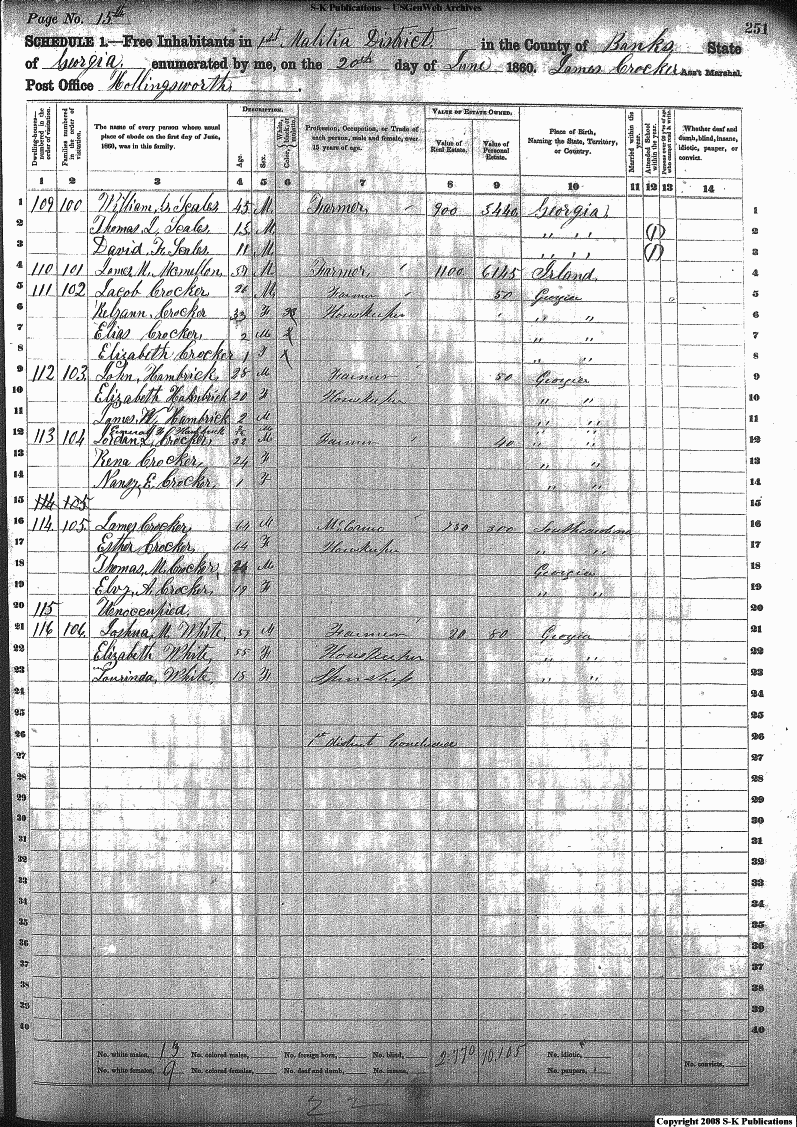 S-K Publications – USGenWeb Archives
Page No. 15th
251
SCHEDULE 1.—Free Inhabitants in 1st Malitia District in the County of Banks State
of Georgia enumerated by me, on the 20th day of June 1860. James Crocker Ass't Marshal.
Post Office Hollingsworth
Dwelling-houses—numbered in the order of visitation.
Families numbered in the order of visitation.
The name of every person whose usual place of abode on the first day of June, 1860, was in this family.
DESCRIPTION.
Age.
Sex.
Color, White, black, or mulatto.
Profession, Occupation, or Trade of each person, male and female, over 15 years of age.
VALUE OF ESTATE OWNED.
Value of Real Estate.
Value of Personal Estate.
Place of Birth, Naming the State, Territory, or Country.
Married within the year.
Attended School within the year.
Persons over 20 y'rs of age who cannot read & write.
Whether deaf and dumb, blind, insane, idiotic, pauper, or convict.
1 2 3 4 5 6 7 8 9 10 11 12 13 14
1 109 100 William G. Scales 45 M Farmer 900 5440 Georgia 1
2 Thomas L. Scales 15 M " " (1) 2
3 David F. Scales 11 M " " (1) 3
4 110 101 James M. 57 M Farmer 1100 6145 Irland 4
5 111 102 Jacob Crocker 26 M Farmer 50 Georgia 5
6 Crocker 33 F Houskeeper " " 6
7 Elias Crocker 2 M " " 7
8 Elizabeth Crocker 1 F " " 8
9 112 103 John Hambrick 28 M Farmer 50 Georgia 9
10 Elizabeth Hambrick 20 F Houskeeper " " 10
11 James W. Hambrick 2 M " " 11
Hambrick " "
12 113 104 Jordan L. Crocker 32 M Farmer 40 " " 12
13 Rena Crocker 24 F " " 13
14 Nancy E. Crocker 1 F " " 14
15 114 105 15
16 114 105 James Crocker 64 M 300 Southcarolina 16
17 Esther Crocker 64 F Houskeeper " " 17
18 Thomas M. Crocker M Georgia 18
19 A. Crocker 19 F " " 19
20 115 Unoccupied 20
21 116 106 Joshua M. White 57 M Farmer 20 80 Georgia 21
22 Elizabeth White 55 F Houskeeper " " 22
23 Laurinda White 15 F " " 23
24 24
25 25
26 1st district Concluded 26
27 27
28 28
29 29
30 30
31 31
32 32
33 33
34 34
35 35
36 36
37 37
38 38
39 39
40 40
No. white males, 13 No. colored males, No. foreign born, No. blind, 2770 No. idiotic,
No. white females, 9 No. colored females, No. deaf and dumb, No. insane, No. paupers, No. convicts,
22
Copyright 2008 S-K Publications